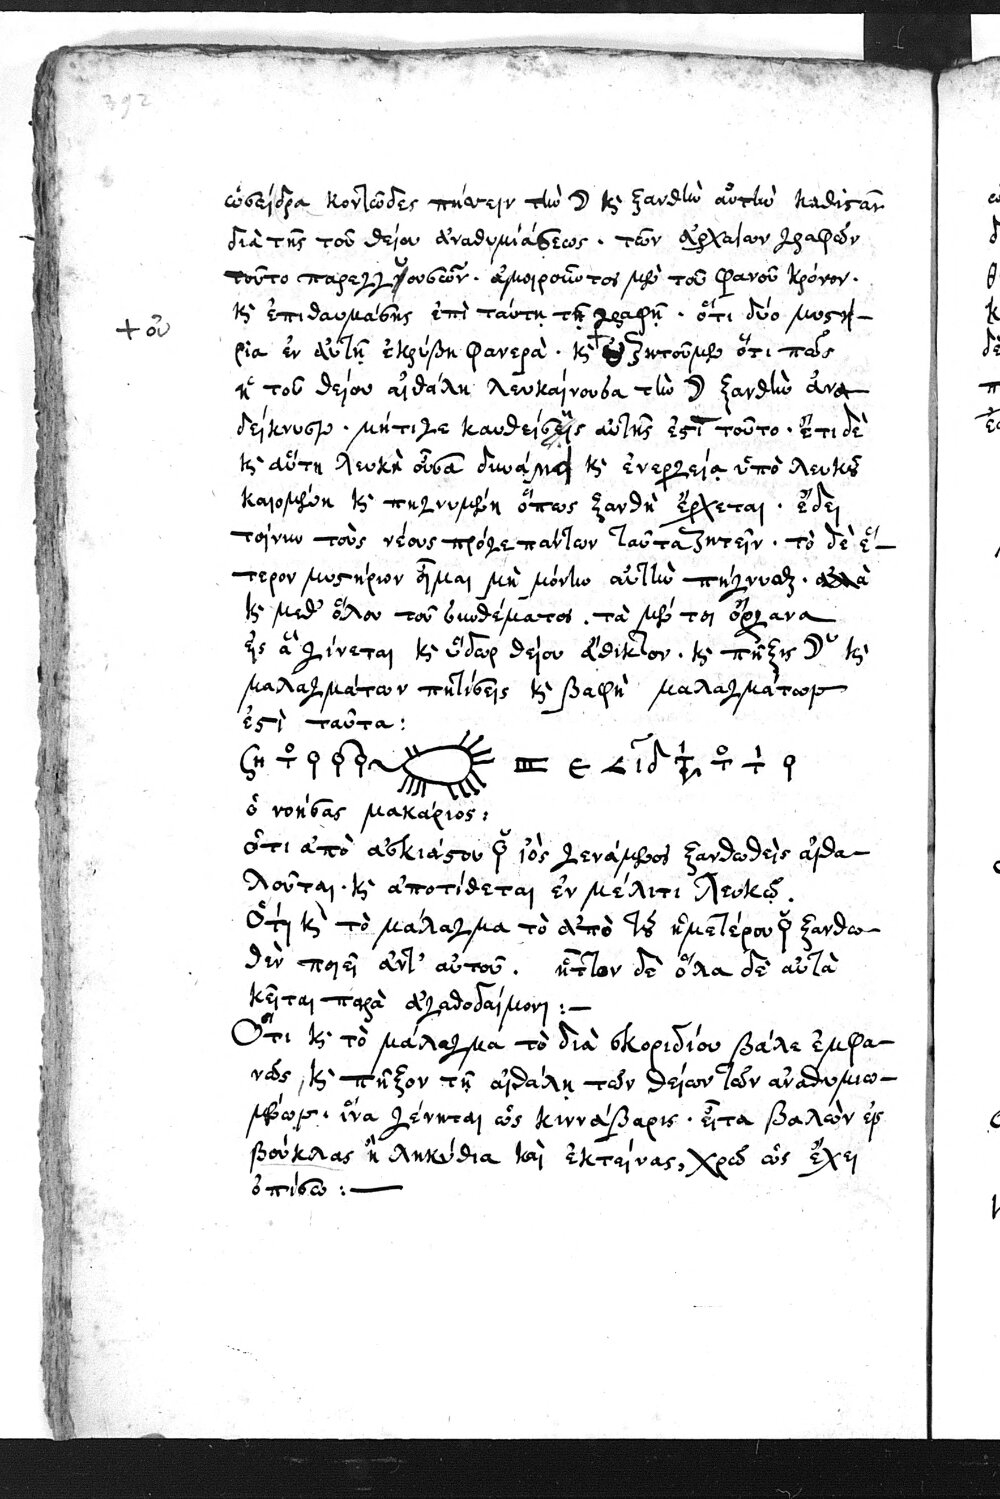 392
διὰ τῆς τοῦ θείου ἀναθυμιάσεως · τῶν ἀρχαίων γραφῶν
τοῦτο · τοῦ φανοῦ κρόνον ·
κ ἐπιθαυμάσῃς ἐπὶ ταύτῃ τῇ γραφῇ · ὅτι δύο μυστή-
+ οὐ
ρια ἐν αὐτῇ ἐκρύβη φανερὰ · κ + ζητοῦμεν ὅτι πῶς
ἡ τοῦ θείου αἰθάλη λευκαίνουσα τὴν ☽ ξανθὴν ἀνα-
δείκνυσιν · μήτιγε καυθείσης αὐτῆς ἐστὶ τοῦτο · ἔτι δὲ
κ αὕτη λευκὴ οὖσα δυνάμει κ ἐνεργείᾳ ὑπὸ λευκοῦ
καιομένη κ πηγνυμένη ὅπως ξανθὴ ἔρχεται · ἔδει
τοίνυν τοὺς νέους πρόγε πάντων ταῦτα ζητεῖν · τὸ δὲ ἕ-
τερον μυστήριον οἶμαι μὴ μόνην αὐτὴν πήγνυσθαι · ἀλλὰ
κ μεθ' ὅλου τοῦ συνθέματος · τὰ μέν τοι ὄργανα
εἰς ἃ γίνεται κ ὕδωρ θείου ἀθίκτου · κ πῆξις ☽ κ
μαλαγμάτων κ βαφὴ μαλαγμάτων
ἐστὶ ταῦτα :
ὁ νοήσας μακάριος :
ὅτι ἀπὸ ἀσκιάστου ἰὸς γενάμενος ξανθωθεὶς αἰθα-
λοῦται · κ ἀποτίθεται ἐν μέλιτι λευκῷ .
Ὅτι κ τὸ μάλαγμα τὸ ἀπὸ τοῦ ἡμετέρου ξανθω-
θὲν ποιεῖ ἀντ' αὐτοῦ . ἧττον δὲ ὅλα δὲ αὐτὰ
κεῖται παρὰ ἀγαθοδαίμονι : —
Ὅτι κ τὸ μάλαγμα τὸ διὰ σκοριδίου βάλε ἐμφα-
νῶς, κ πῆξον τῇ αἰθάλῃ τῶν θείων τῶν ἀναθυμιω-
μένων · ἵνα γένηται ὡς κιννάβαρις · εἶτα βαλὼν ἐν
βούκλας ἢ ληκύθια καὶ ἐκτείνας, χρῶ ὡς ἔχει
ὀπίσω : —